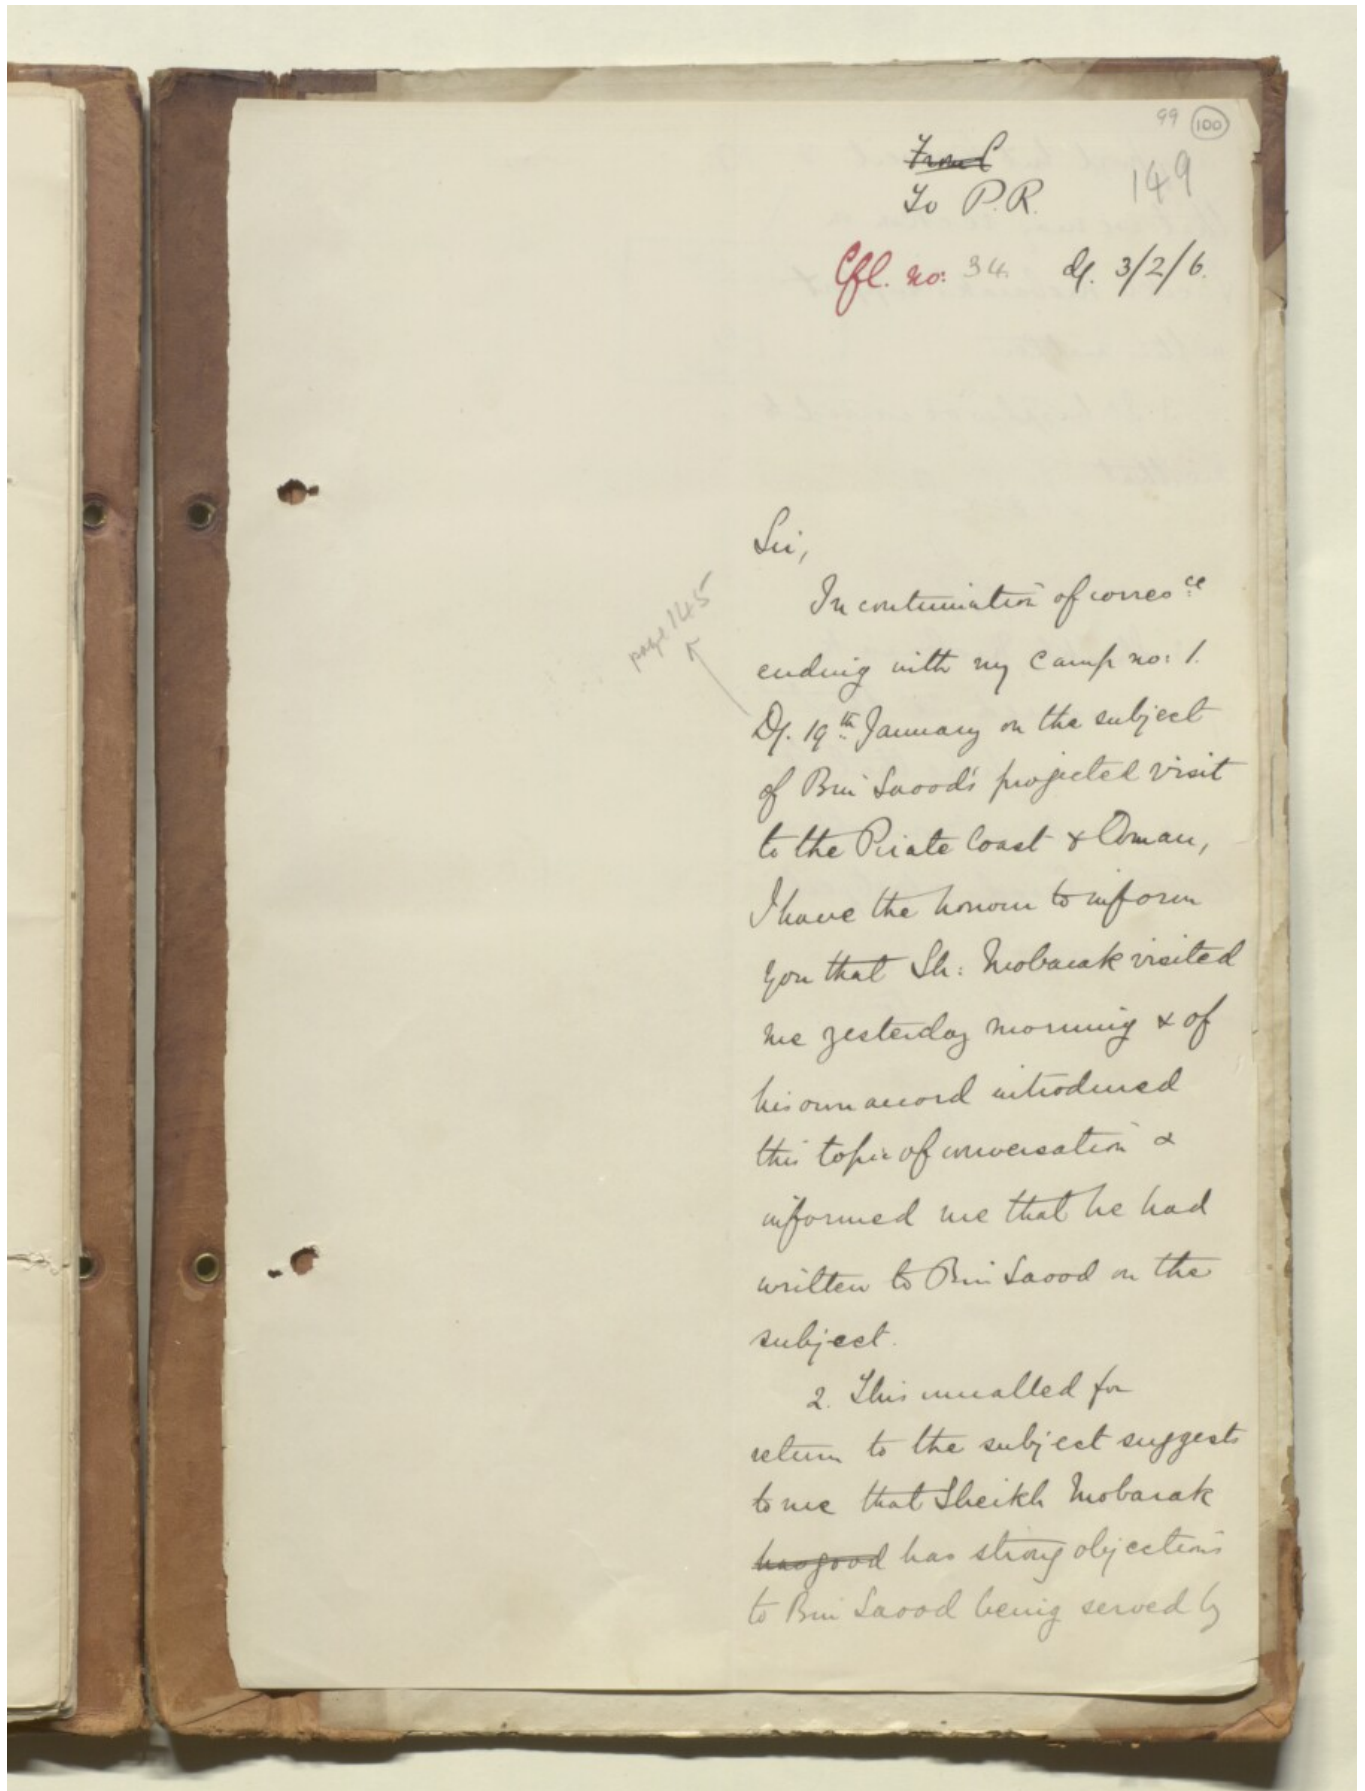 99 100
149
From P
To P.R.
Cfl. no: 34. d/. 3/2/6.
Sir,
In continuation of corresce
page 145
ending with my Camp no: 1.
D/. 19th January on the subject
of Bin Saood's projected visit
to the Pirate Coast & Oman,
I have the honour to inform
you that Sh: Mobarak visited
me yesterday morning & of
his own accord introduced
this topic of conversation &
informed me that he had
written to Bin Saood on the
subject.
2. This uncalled for
return to the subject suggests
to me that Sheikh Mobarak
has good has strong objections
to Bin Saood being served by